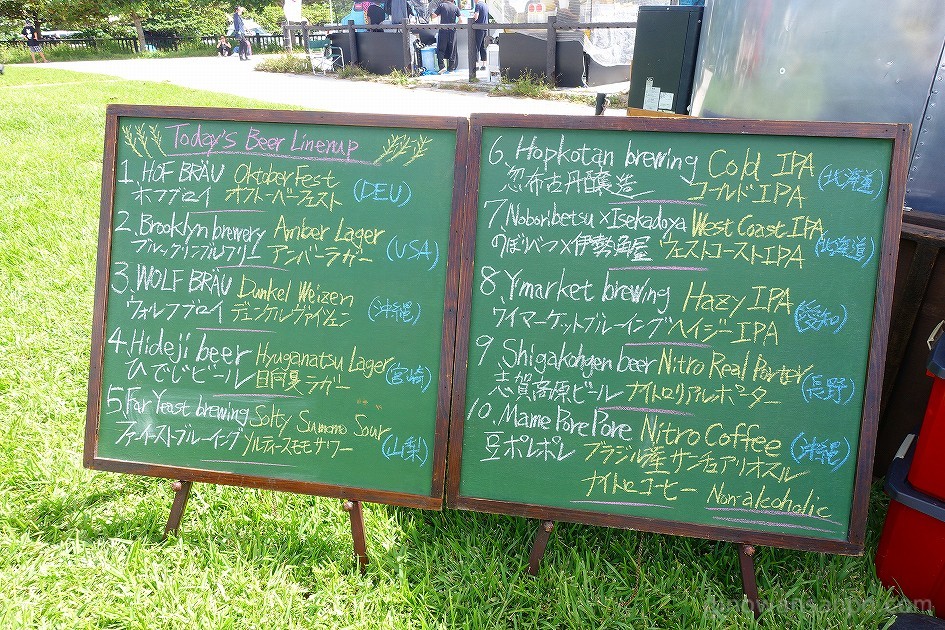 Today's Beer Lineup
1. HOF BRÄU Oktoberfest (DEU)
ホフブロイ オクトーバーフェスト
2. Brooklyn brewery Amber Lager (USA)
ブルックリンブルワリー アンバーラガー
3. WOLF BRÄU Dunkel Weizen (沖縄)
ウォルフブロイ デュンケルヴァイツェン
4. Hideji beer Hyuganatsu Lager (宮崎)
ひでじビール 日向夏ラガー
5. Far Yeast brewing Salty Sumomo Sour (山梨)
ファーイーストブルーイング ソルティースモモサワー
6. Hopkotan brewing Cold IPA (北海道)
忽布古丹醸造 コールドIPA
7. Noboribetsu x Isekadoya West Coast IPA (北海道)
のぼりべつ×伊勢角屋 ウェストコーストIPA
8. Ymarket brewing Hazy IPA (愛知)
ワイマーケットブルーイング ヘイジーIPA
9. Shigakohgen beer Nitro Real Porter (長野)
志賀高原ビール ナイトロリアルポーター
10. Mame Pore Pore Nitro Coffee (沖縄)
豆ポレポレ ブラジル産サンチュアリオスル
ナイトロコーヒー Non-alcoholic